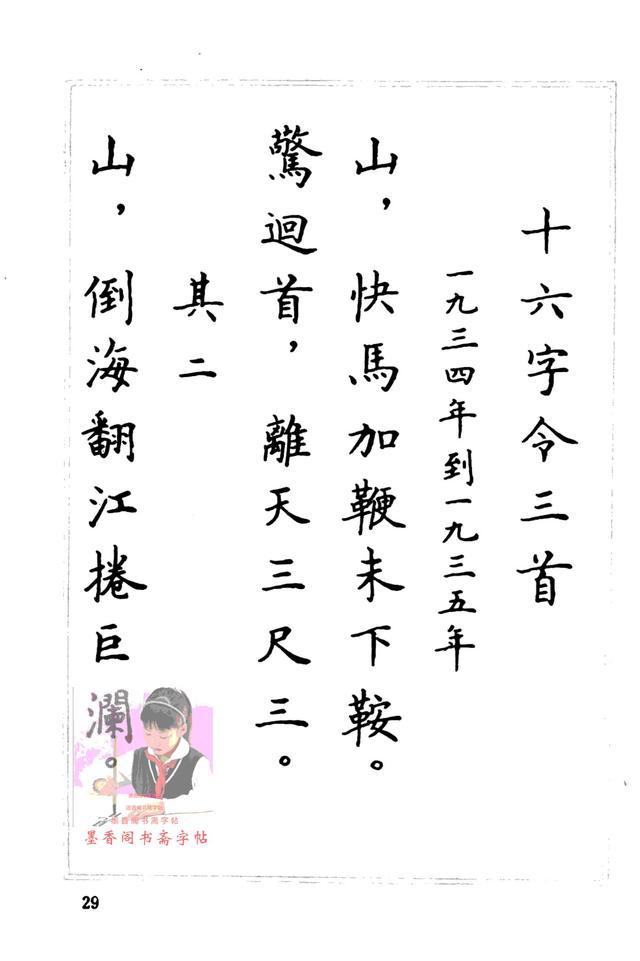 十六字令三首
一九三四年到一九三五年
山，快馬加鞭未下鞍。
驚迴首，離天三尺三。
其二
山，倒海翻江捲巨瀾。
墨香阁书斋字帖
墨香阁书斋字帖
29